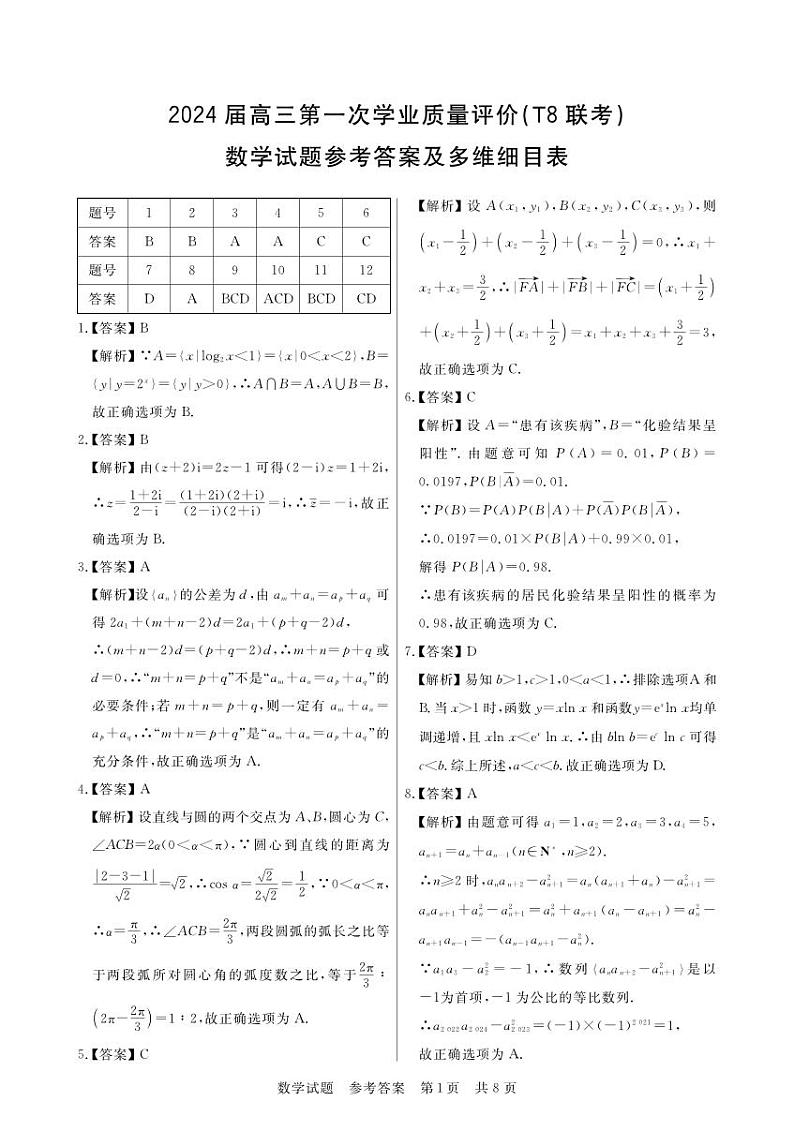 2024 届高三第一次学业质量评价(T8 联考)
数学试题参考答案及多维细目表
题号 1 2 3 4 5 6
答案 B B A A C C
题号 7 8 9 10 11 12
答案 D A BCD ACD BCD CD
1.【答案】B
【解析】∵A={x|log₂x<1}={x|0<x<2},B=
{y|y=2ˣ}={y|y>0},∴A∩B=A,A∪B=B,
故正确选项为 B.
2.【答案】B
【解析】由(z+2)i=2z-1 可得(2-i)z=1+2i,
∴z=\frac{1+2i}{2-i}=\frac{(1+2i)(2+i)}{(2-i)(2+i)}=i,∴\overline{z}=-i,故正
确选项为 B.
3.【答案】A
【解析】设{aₙ}的公差为 d,由 aₘ+aₙ=aₚ+a_q 可
得 2a₁+(m+n-2)d=2a₁+(p+q-2)d,
∴(m+n-2)d=(p+q-2)d,∴m+n=p+q 或
d=0,∴“m+n=p+q”不是“aₘ+aₙ=aₚ+a_q”的
必要条件;若 m+n=p+q,则一定有 aₘ+aₙ=
aₚ+a_q,∴“m+n=p+q”是“aₘ+aₙ=aₚ+a_q”的
充分条件,故正确选项为 A.
4.【答案】A
【解析】设直线与圆的两个交点为 A、B,圆心为 C,
∠ACB=2α(0<α<π),∵圆心到直线的距离为
\frac{|2-3-1|}{\sqrt{2}}=\sqrt{2},∴cos α=\frac{\sqrt{2}}{2\sqrt{2}}=\frac{1}{2},∵0<α<π,
∴α=\frac{π}{3},∴∠ACB=\frac{2π}{3},两段圆弧的弧长之比等
于两段弧所对圆心角的弧度数之比,等于\frac{2π}{3}∶
(2π-\frac{2π}{3})=1∶2,故正确选项为 A.
5.【答案】C
【解析】设 A(x₁,y₁),B(x₂,y₂),C(x₃,y₃),则
(x₁-\frac{1}{2})+(x₂-\frac{1}{2})+(x₃-\frac{1}{2})=0,∴x₁+
x₂+x₃=\frac{3}{2},∴|\overrightarrow{FA}|+|\overrightarrow{FB}|+|\overrightarrow{FC}|=(x₁+\frac{1}{2})
+(x₂+\frac{1}{2})+(x₃+\frac{1}{2})=x₁+x₂+x₃+\frac{3}{2}=3,
故正确选项为 C.
6.【答案】C
【解析】设 A=“患有该疾病”,B=“化验结果呈
阳性”. 由题意可知 P(A)=0.01,P(B)=
0.0197,P(B|\overline{A})=0.01.
∵P(B)=P(A)P(B|A)+P(\overline{A})P(B|\overline{A}),
∴0.0197=0.01×P(B|A)+0.99×0.01,
解得 P(B|A)=0.98.
∴患有该疾病的居民化验结果呈阳性的概率为
0.98,故正确选项为 C.
7.【答案】D
【解析】易知 b>1,c>1,0<a<1,∴排除选项A 和
B. 当 x>1 时,函数 y=xln x 和函数y=eˣln x均单
调递增,且 xln x<eˣ ln x.∴由 bln b=eᶜ ln c 可得
c<b.综上所述,a<c<b.故正确选项为 D.
8.【答案】A
【解析】由题意可得 a₁=1,a₂=2,a₃=3,a₄=5,
aₙ₊₁=aₙ+aₙ₋₁(n∈N*,n≥2).
∴n≥2 时,aₙaₙ₊₂-a²ₙ₊₁=aₙ(aₙ₊₁+aₙ)-a²ₙ₊₁=
aₙaₙ₊₁+a²ₙ-a²ₙ₊₁=a²ₙ+aₙ₊₁(aₙ-aₙ₊₁)=a²ₙ-
aₙ₊₁aₙ₋₁=-(aₙ₋₁aₙ₊₁-a²ₙ).
∵a₁a₃-a²₂=-1,∴数列{aₙaₙ₊₂-a²ₙ₊₁}是以
-1为首项,-1 为公比的等比数列.
∴a₂₀₂₂a₂₀₂₄-a²₂₀₂₃=(-1)×(-1)²⁰²¹=1,
故正确选项为 A.
数学试题 参考答案 第 1 页 共 8 页